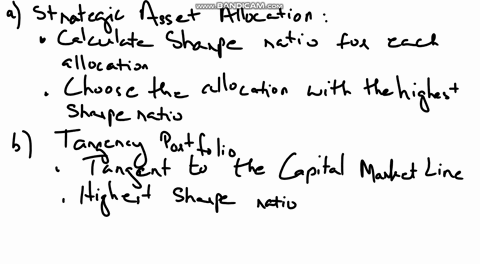 www.BANDICAM.com
a) Strategic Asset Allocation:
• Calculate Sharpe ratio for each
allocation
• Choose the allocation with the highest
Sharpe ratio
b) Tangency Portfolio
• Tangent to the Capital Market Line
• Highest Sharpe ratio